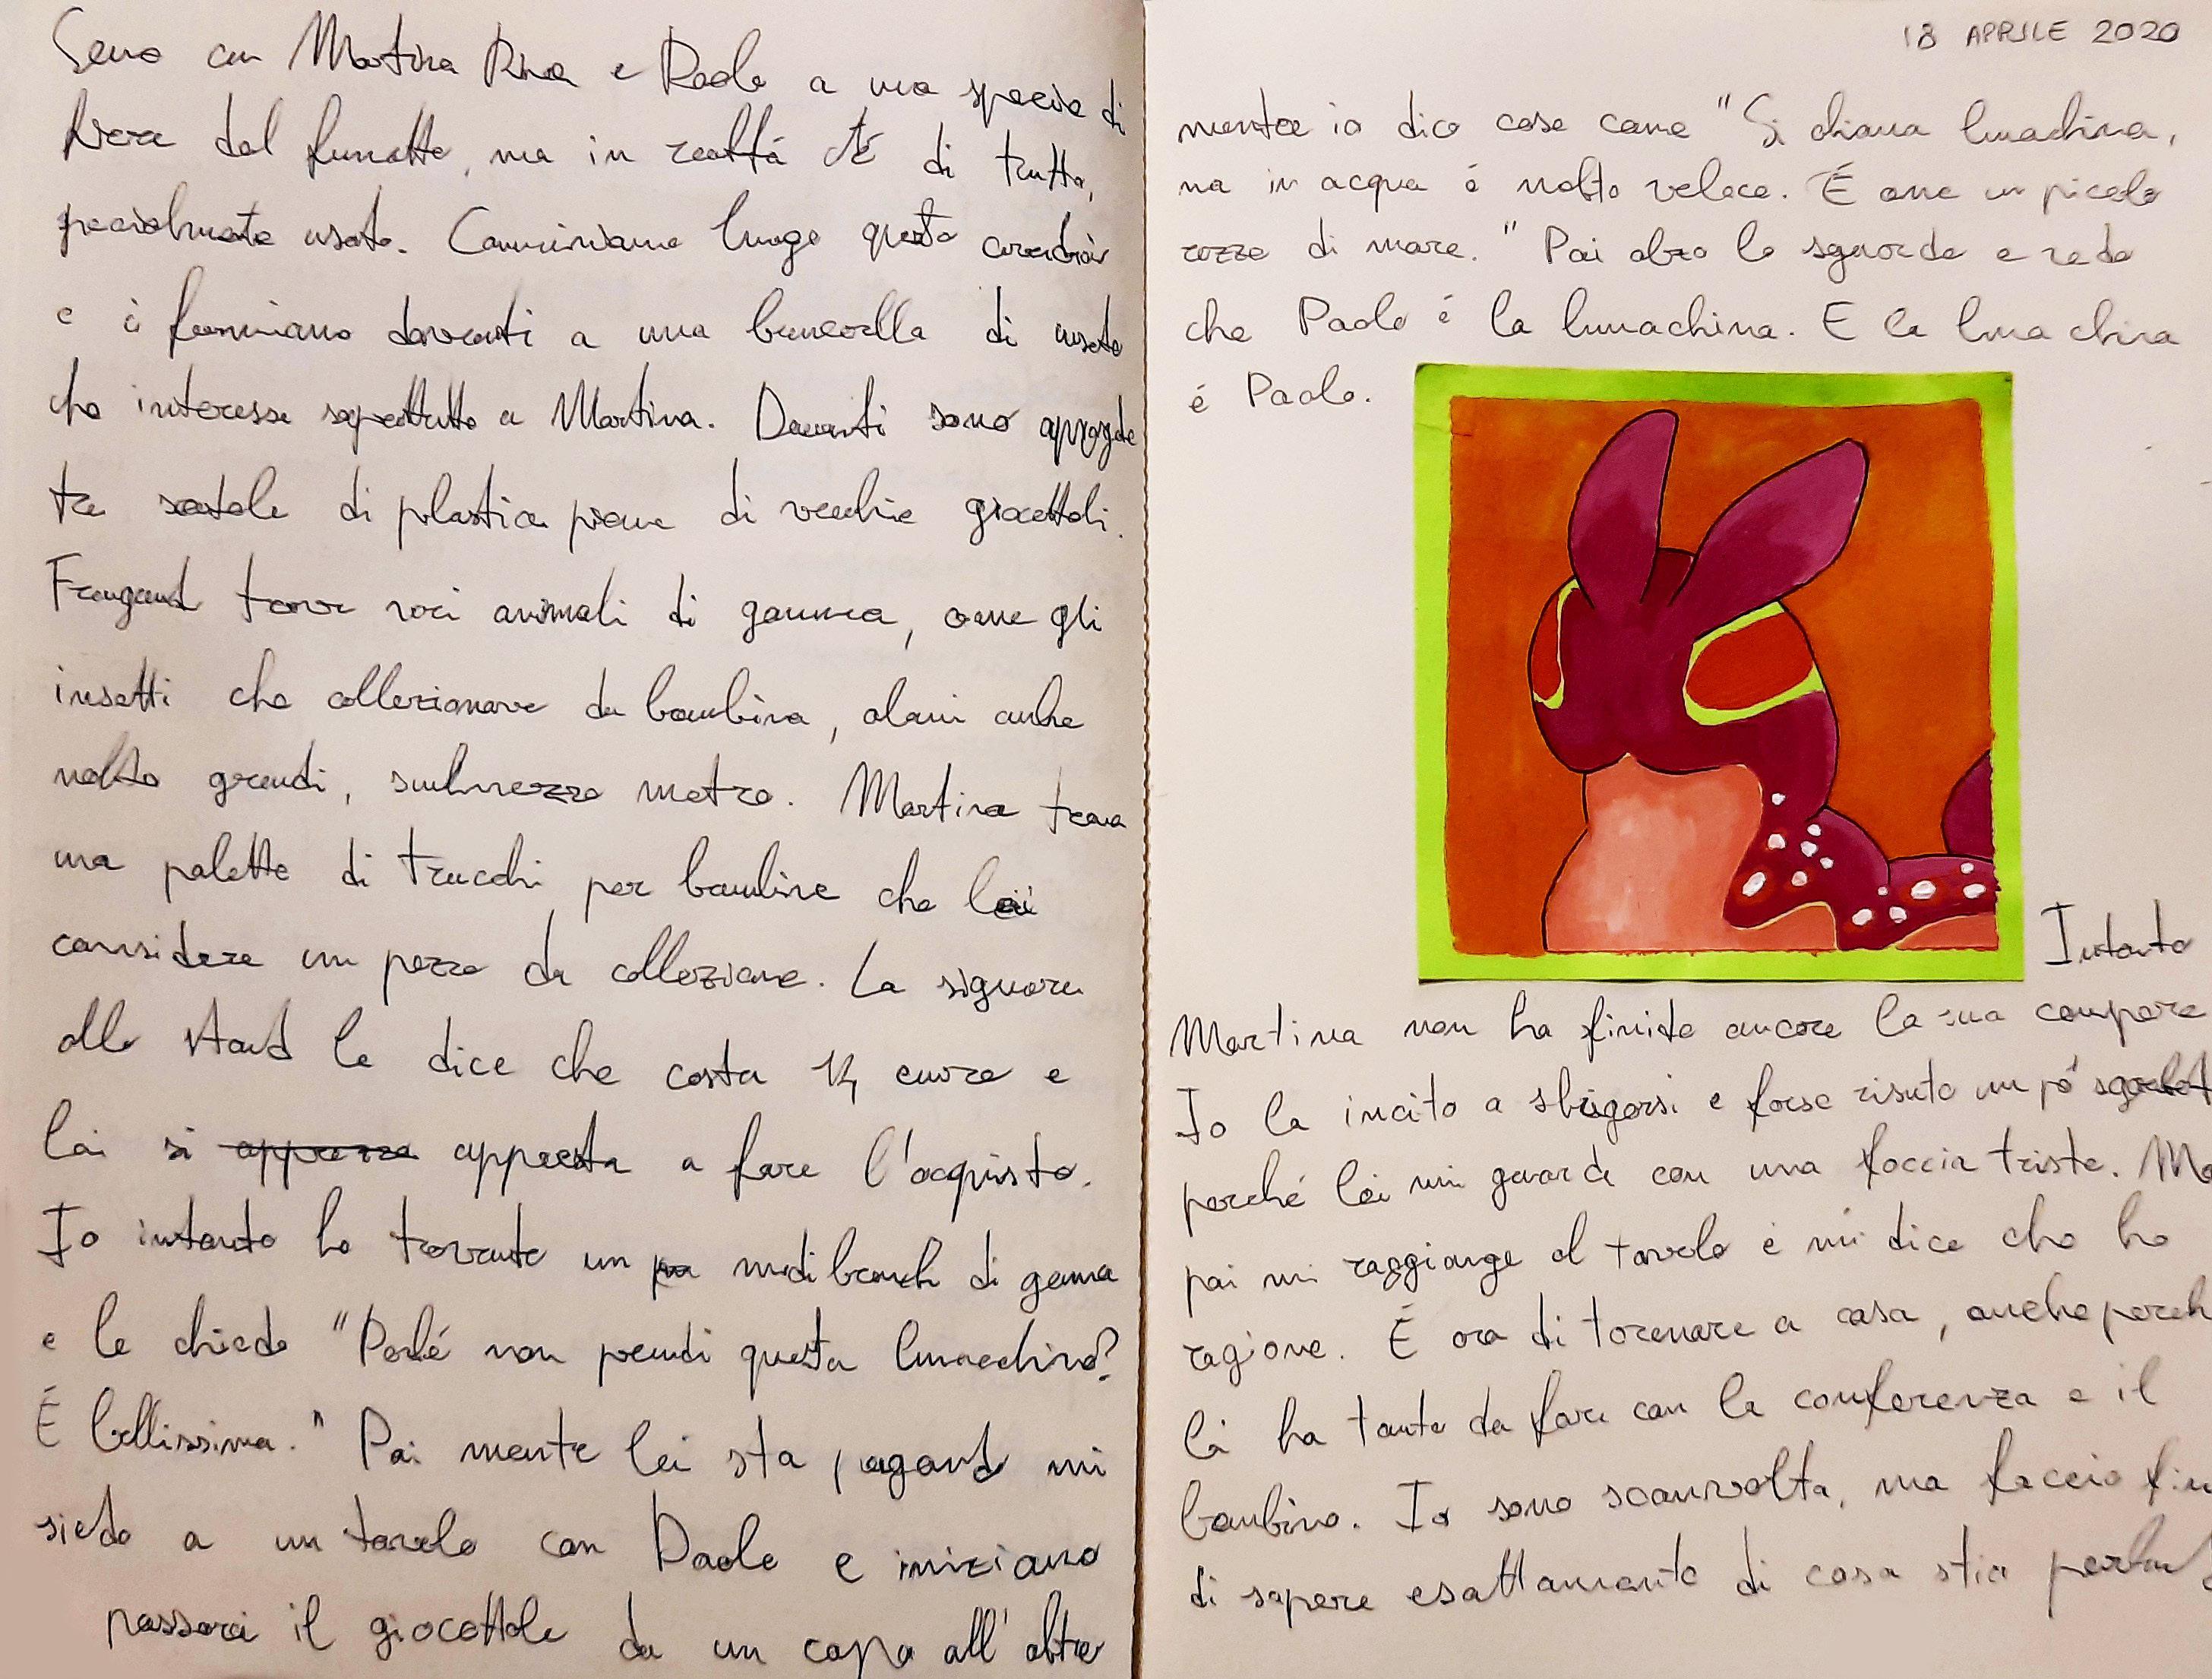 Sono con Martina Riva e Paolo a una specie di
fiera del fumetto, ma in realtà c'è di tutto,
specialmente usato. Camminiamo lungo questo corridoio
e ci fermiamo davanti a una bancarella di usato
che interessa soprattutto a Martina. Davanti sono appoggiate
tre scatole di plastica piene di vecchi giocattoli.
Frugando trovo vari animali di gomma, come gli
insetti che collezionavo da bambina, alcuni anche
molto grandi, sul mezzo metro. Martina trova
una palette di trucchi per bambine che lei
considera un pezzo da collezione. La signora
allo stand le dice che costa 14 euro e
lei si apprezza appresta a fare l'acquisto.
Io intanto ho trovato un nudibranch di gomma
e le chiedo "Perché non prendi questa lumachina?
É bellissima." Poi mentre lei sta pagando mi
siedo a un tavolo con Paolo e iniziamo
passarci il giocattolo da un capo all'altro
18 APRILE 2020
mentre io dico cose come "Si chiama lumachina,
ma in acqua é molto veloce. É come un piccolo
razzo di mare." Poi alzo lo sguardo e vedo
che Paolo é la lumachina. E la lumachina
é Paolo.
Intanto
Martina non ha finito ancora le sue compere
Io la incito a sbrigarsi e forse risulto un pó
perché lei mi guarda con una faccia triste. Ma
poi mi raggiunge al tavolo e mi dice che ho
ragione. É ora di tornare a casa, anche perch
lá ha tanto da fare con la conferenza e il
bambino. Io sono sconvolta, ma faccio fin
di sapere esattamente di cosa stia parland